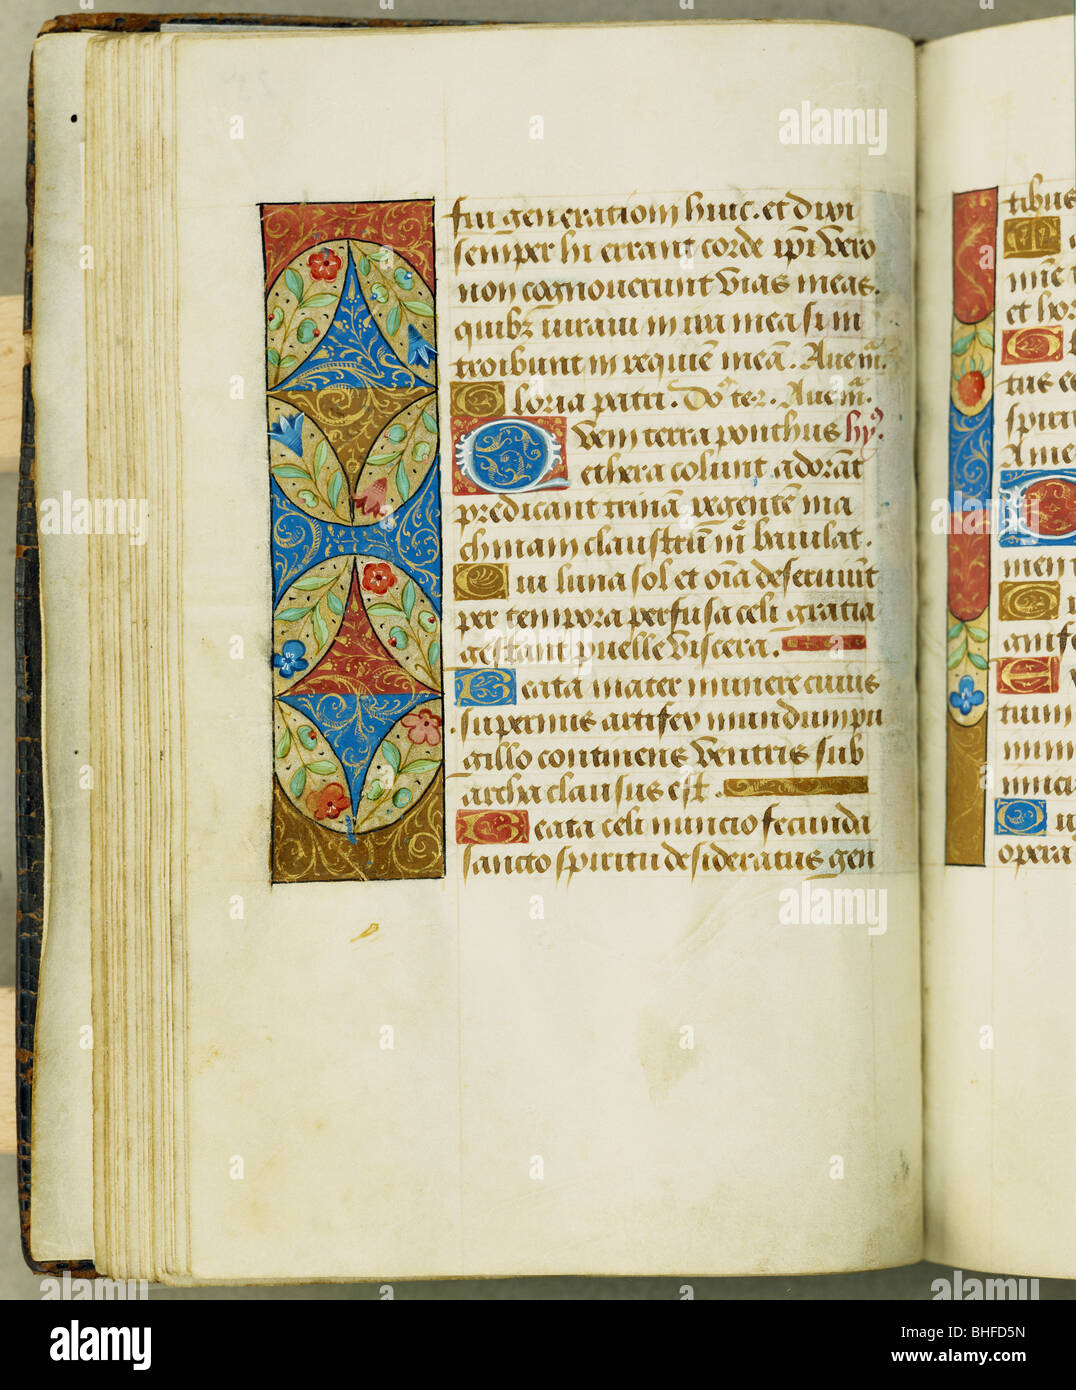 fui generationi huic. et dixi
semper hi errant corde ip̄i vero
non cognoverunt vias meas.
quib3 iuravi in ira mea si in
troibunt in requiē meā. Ave m̄.
Gloria patri. Do͂ te2. Ave m̄.
Quem terra ponthus hy9.
ethera colunt adorāt
predicant trinā regentē ma
chinam claustrū m̄ baiulat.
Cui luna sol et oīa deserviūt
per tempora perfusa celi gratia
gestant puelle viscera.
Beata mater munere cuius
supernus artifex mundum pu
gillo continens ventris sub
archa clausus est.
Beata celi nuncio fecunda
sancto spiritu desideratus gen
tibus
et hor
tus es
spirit
Ame
men
anife
tuum
opera
alamy
alamy
Image ID: BHFD5N
www.alamy.com